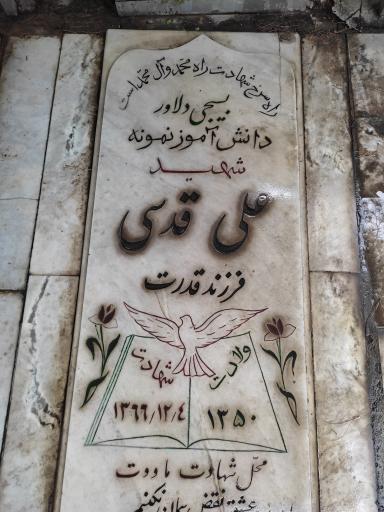 راه سرخ شهادت راه محمد و آل محمد است
بسیجی دلاور
دانش آموز نمونه
شهید
علی قدسی
فرزند قدرت
ولادت
شهادت
۱۳۵۰
۱۳۶۶/۱۲/۴
محل شهادت ماووت
عشق نقض پیمان نکنیم